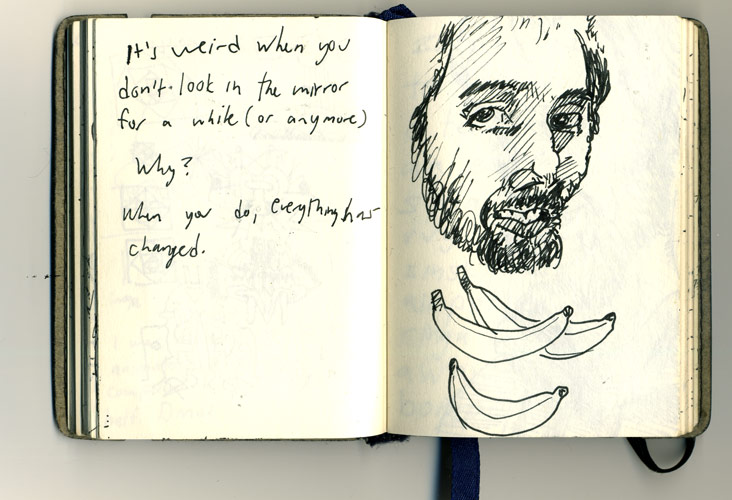 It's weird when you
don't look in the mirror
for a while (or anymore)
Why?
When you do, everything has
changed.